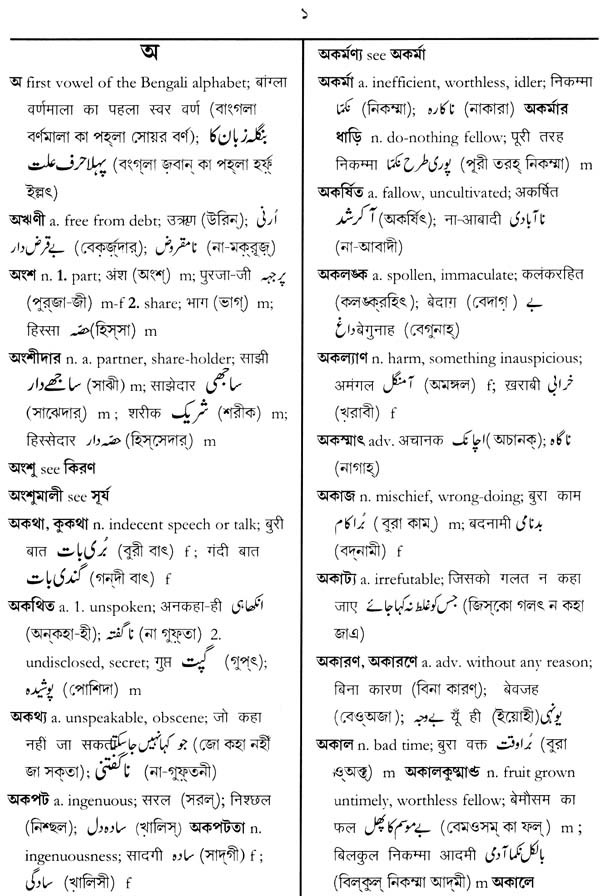 ১
অ
অ first vowel of the Bengali alphabet; बांग्ला
वर्णमाला का पहला स्वर वर्ण (বাংগলা
বর্ণমালা কা পহ্‌লা সোয়র বর্ণ); بنگلہ زبان کا
پہلا حرف علت (বংগ্‌লা জ়বান্ কা পহ্‌লা হর্ফ়্
ইল্লৎ)
অঋণী a. free from debt; उऋण (উরিন্); اُرنی
بے قرض دار (বেক়র্জ়্‌দার্); نا مقروض (না-মক়্‌রূজ়্)
অংশ n. 1. part; अंश (অংশ্) m; पुरजा-जी پرجہ
(পুর্‌জা-জী) m-f 2. share; भाग (ভাগ্) m;
हिस्सा حصّہ (হিস্‌সা) m
অংশীদার n. a. partner, share-holder; साझी
ساجھے دار (সাঝী) m; साझेदार ساجھی
(সাঝেদার্) m; शरीक شریک (শরীক) m;
हिस्सेदार حصّہ دار (হিস্‌সেদার্) m
অংশু see কিরণ
অংশুমালী see সূর্য
অকথা, কুকথা n. indecent speech or talk; बुरी
बात بُری بات (বুরী বাৎ) f; गंदी बात
گندی بات (গন্‌দী বাৎ) f
অকথিত a. 1. unspoken; अनकहा-ही انکہا ہی
(অন্‌কহা-হী); نا گفتہ (না গুফ়্‌তা) 2.
undisclosed, secret; गुप्त گپت (গুপ্‌ৎ);
پوشیدہ (পোশিদা) m
অকথ্য a. unspeakable, obscene; जो कहा
नहीं जा सकता جو کہا نہیں جا سکتا (জো কহা নহীঁ
জা সক্‌তা); نا گفتنی (না-গুফ়্‌তনী)
অকপট a. ingenuous; सरल (সরল্); निश्छल
(নিশ্ছল); سادہ دل (খ়ালিস্) অকপটতা n.
ingenuousness; सादगी سادہ (সাদ্‌গী) f;
سادگی (খ়ালিসী) f
অকর্মণ্য see অকর্মা
অকর্মা a. inefficient, worthless, idler; निकम्मा
نکمّا (নিকম্মা); ناکارہ (নাকারা) অকর্মার
ধাড়ি n. do-nothing fellow; पूरी तरह
निकम्मा پوری طرح نکمّا (পূরী তরহ্ নিকম্মা) m
অকর্ষিত a. fallow, uncultivated; अकर्षित
آکرشد (অকর্ষিৎ); ना-आबादी نا آبادی
(না-আবাদী)
অকলঙ্ক a. spollen, immaculate; कलंकरहित
(কলঙ্ক্‌রহিৎ); बेदाग़ (বেদাগ়্) بے
داغ बेगुनाह (বেগুনাহ্)
অকল্যাণ n. harm, something inauspicious;
अमंगल آمنگل (অমঙ্গল) f; ख़राबी خرابی
(খ়রাবী) f
অকস্মাৎ adv. अचानक اچانک (অচানক্); ناگاہ
(নাগাহ্)
অকাজ n. mischief, wrong-doing; बुरा काम
بُرا کام (বুরা কাম্) m; बदनामी بدنامی
(বদ্‌নামী) f
অকাট্য a. irrefutable; जिसको गलत न कहा
जाए جس کو غلط نہ کہا جائے (জিস্‌কো গলৎ ন কহা
জাএ)
অকারণ, অকারণে a. adv. without any reason;
बिना कारण (বিনা কারণ্); बेवजह
(বেওঅজা); بے وجہ यूँ ही (ইয়োহী) یونہی
অকাল n. bad time; बुरा वक्त بُرا وقت (বুরা
ওঅক়্ত্) m অকালকুষ্মাণ্ড n. fruit grown
untimely, worthless fellow; बेमौसम का
फल بے موسم کا پھل (বেমওসম্ কা ফল্) m;
बिलकुल निकम्मा आदमी بالکل نکمّا آدمی
(বিল্‌কুল্ নিকম্মা আদ্‌মী) m অকালে